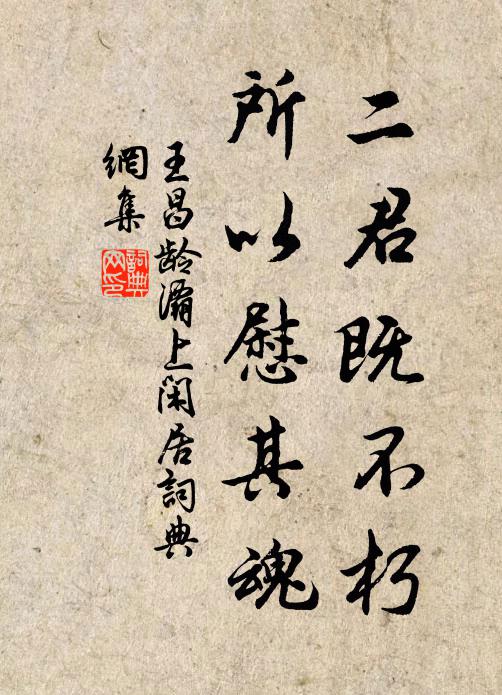 二君既不朽
所以慰其魂
王昌龄灞上闲居詞典
網集
詞典
网印